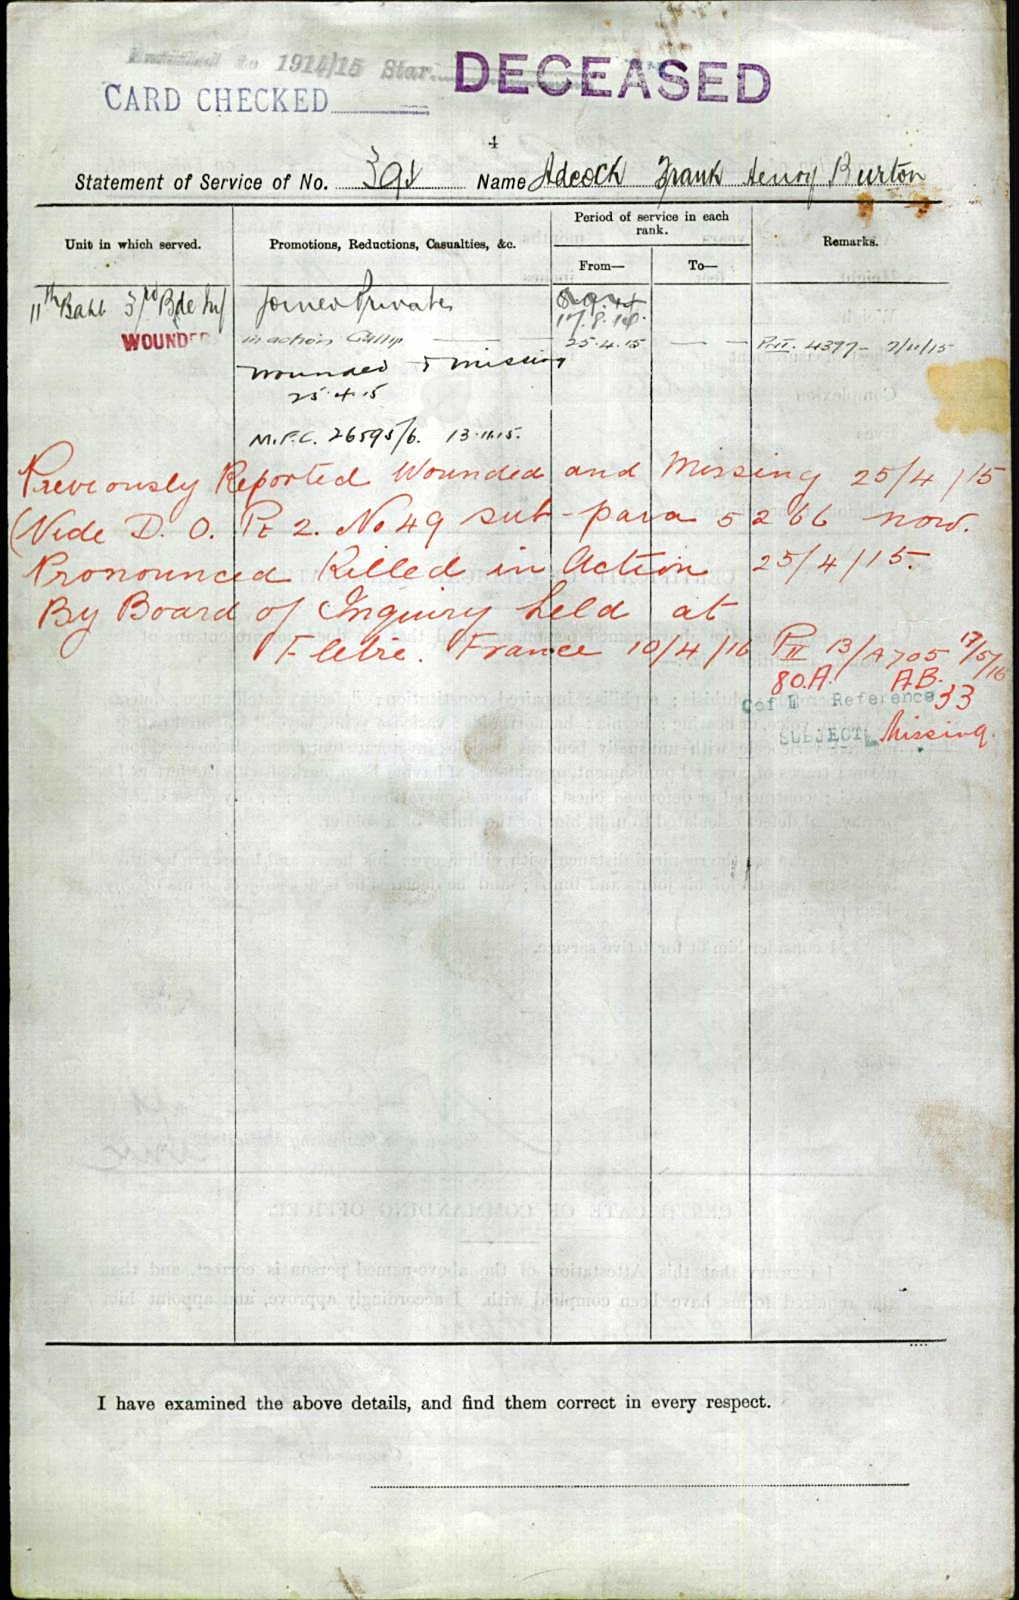 Entitled to 1914/15 Star.
CARD CHECKED
DECEASED
4
Statement of Service of No. 398 Name Adcock Frank Henry Burton
Unit in which served. Promotions, Reductions, Casualties, &c. Period of service in each rank. Remarks.
From— To—
11th Battn 3rd Bde Inf Joined Private
17.8.14.
WOUNDED in action Gallip 25.4.15 PtII. 4397 - 2/11/15
Wounded & missing
25.4.15
M.F.C. 26595/6. 13.11.15.
Previously Reported Wounded and Missing 25/4/15
(Vide D. O. Pt 2. No 49 sub-para 5266 now.
Pronounced Killed in Action 25/4/15.
By Board of Inquiry held at
Fletre. France 10/4/16 PII 13/A705 17/5/16
80.A. A.B.
Cof E Reference 33
SUBJECT Missing.
I have examined the above details, and find them correct in every respect.